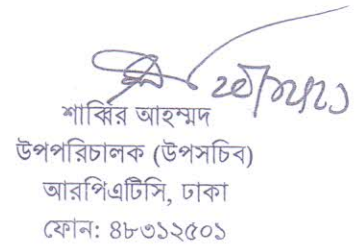 শাব্বির আহম্মদ
উপপরিচালক (উপসচিব)
আরপিএটিসি, ঢাকা
ফোন: ৪৮৩১২৫০১